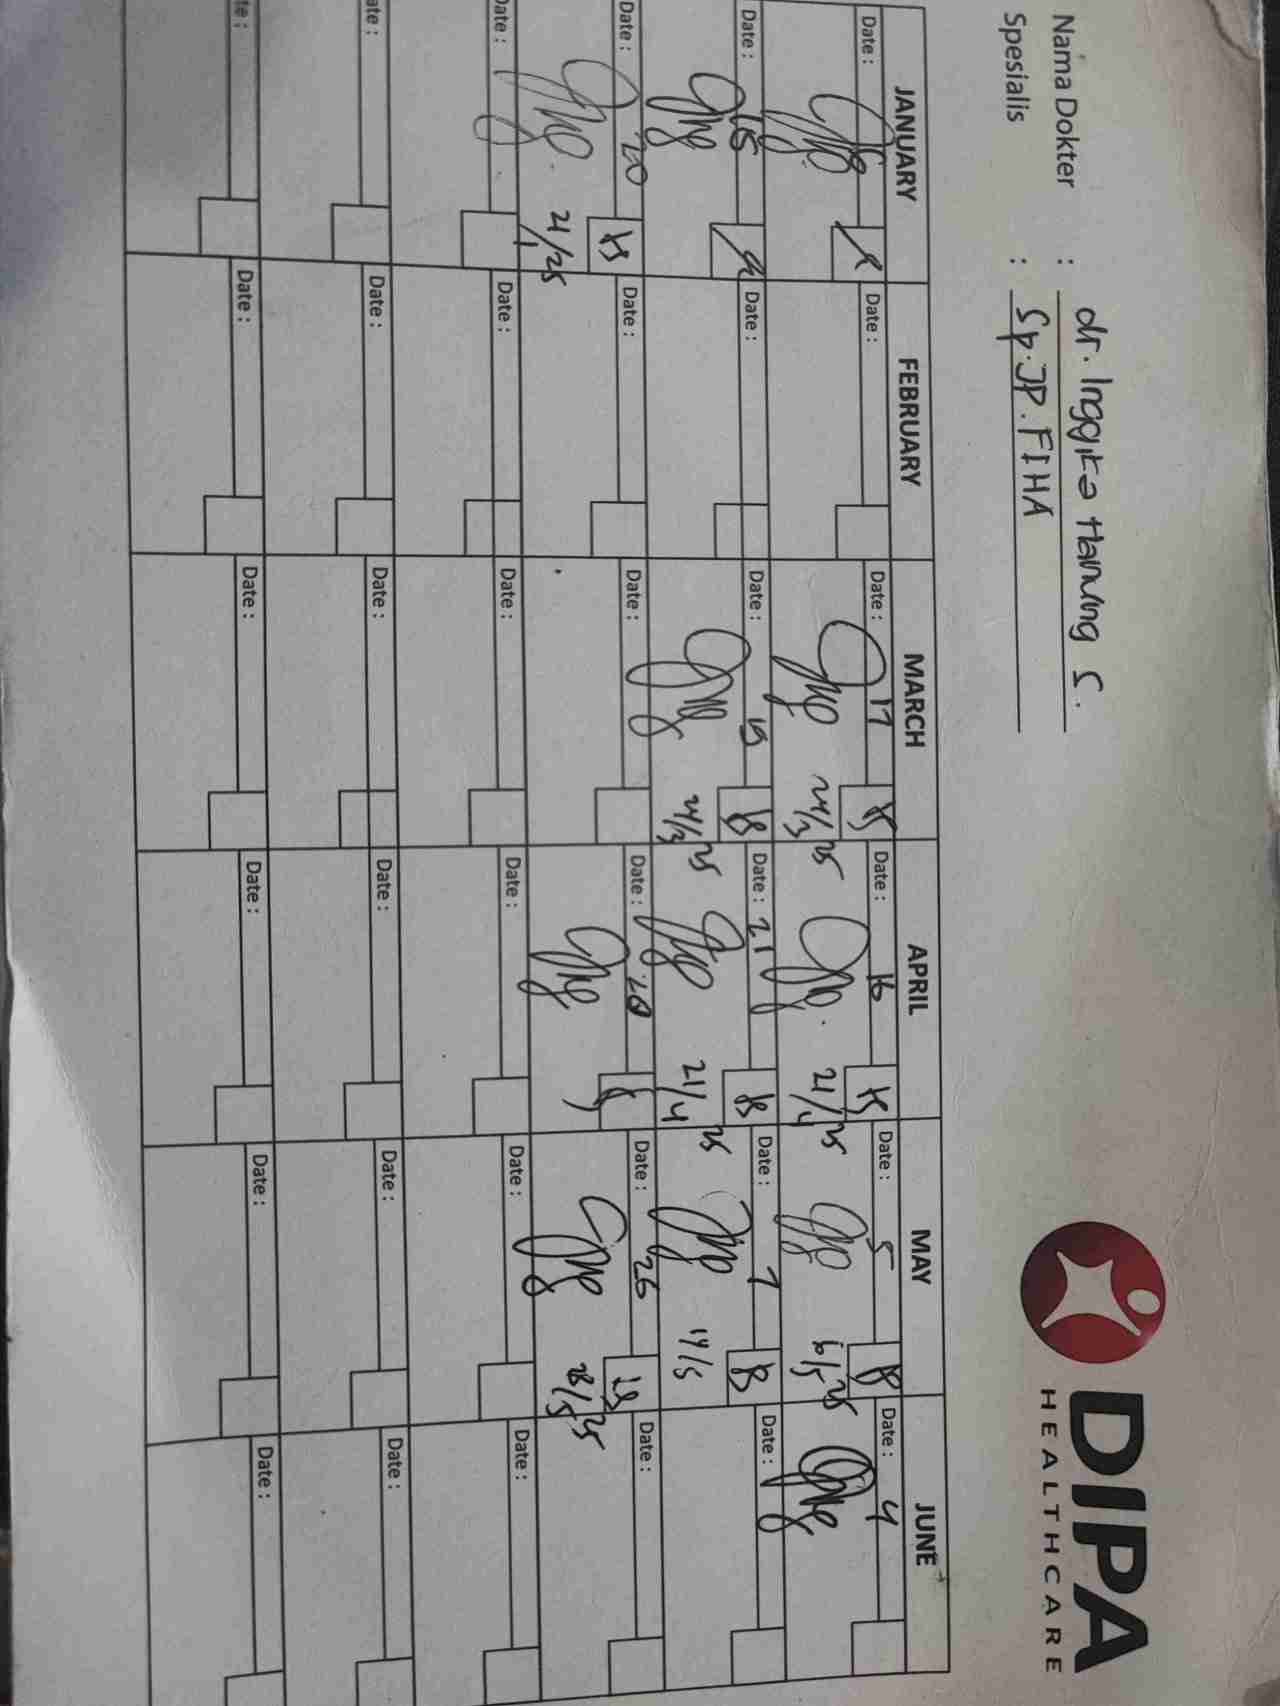 DIPA
HEALTHCARE
Nama Dokter : dr. Inggita Hanung S.
Spesialis : Sp.JP.FIHA
JANUARY FEBRUARY MARCH APRIL MAY JUNE
Date : Date : Date : 17 Date : 16 Date : 5 Date : 4
24/3 25 21/4 25 6/5 25
Date : 15 Date : Date : 19 Date : 21 Date : 7 Date :
24/3 25 21/4 25 14/5
Date : 20 Date : Date : Date : 28 Date : 26 Date :
21/1 25 28/5 25
Date : Date : Date : Date : Date : Date :
ate : Date : Date : Date : Date : Date :
te : Date : Date : Date : Date : Date :